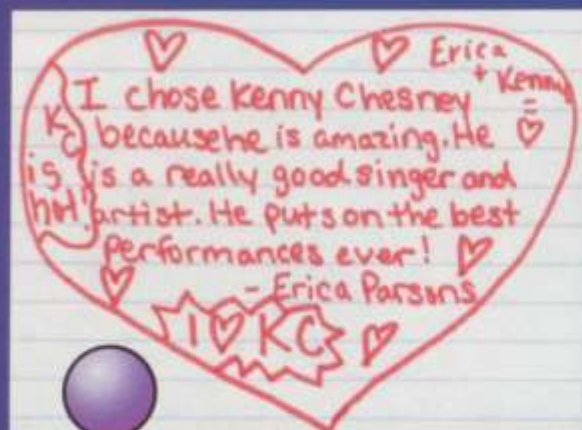 Erica
+ Kenny
= ♡
I chose Kenny Chesney
becausehe is amazing. He
is a really good singer and
artist. He puts on the best
performances ever!
- Erica Parsons
KC
is
hot!
I ♡ KC